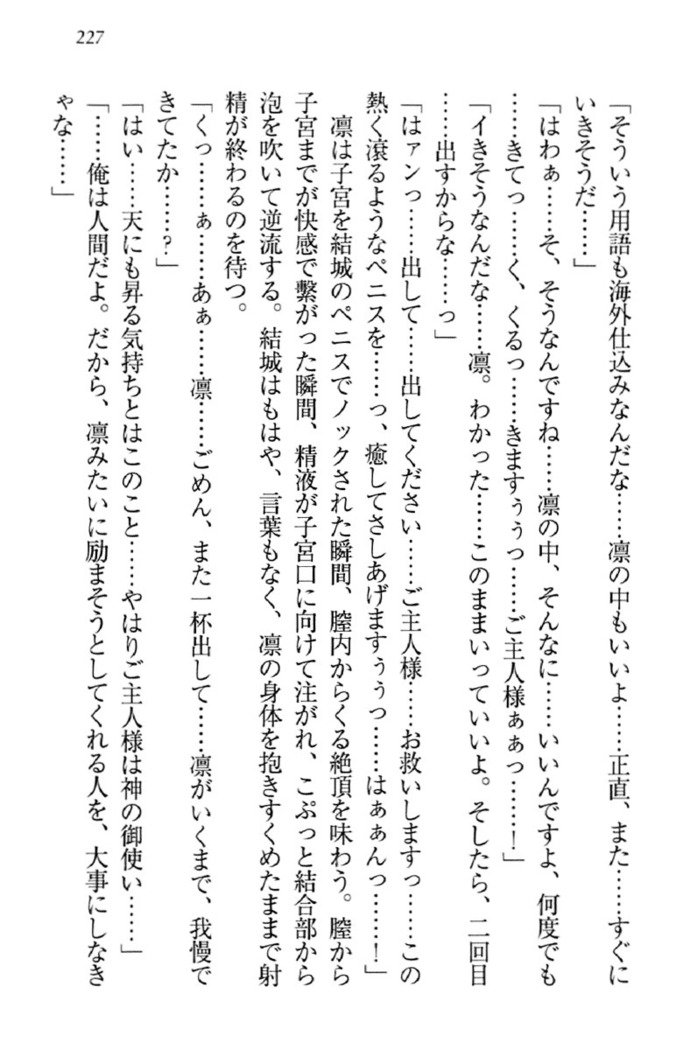 227
「そういう用語も海外仕込みなんだな……凛の中もいいよ……正直、また……すぐに
いきそうだ……」
「はわぁ……そ、そうなんですね……凛の中、そんなに……いいんですよ、何度でも
……きてっ……く、くるっ……きますぅぅっ……ご主人様ぁぁっ……！」
「イきそうなんだな……凛。わかった……このままいっていいよ。そしたら、二回目
……出すからな……っ」
「はァンっ……出して……出してください……ご主人様……お救いしますっ……この
熱く滾るようなペニスを……っ、癒してさしあげますぅぅっ……はぁぁんっ……！」
凛は子宮を結城のペニスでノックされた瞬間、膣内からくる絶頂を味わう。膣から
子宮までが快感で繋がった瞬間、精液が子宮口に向けて注がれ、こぷっと結合部から
泡を吹いて逆流する。結城はもはや、言葉もなく、凛の身体を抱きすくめたままで射
精が終わるのを待つ。
「くっ……ぁ……あぁ……凛……ごめん、また一杯出して……凛がいくまで、我慢で
きてたか……？」
「はい……天にも昇る気持ちとはこのこと……やはりご主人様は神の御使い……」
「……俺は人間だよ。だから、凛みたいに励まそうとしてくれる人を、大事にしなき
ゃな……」